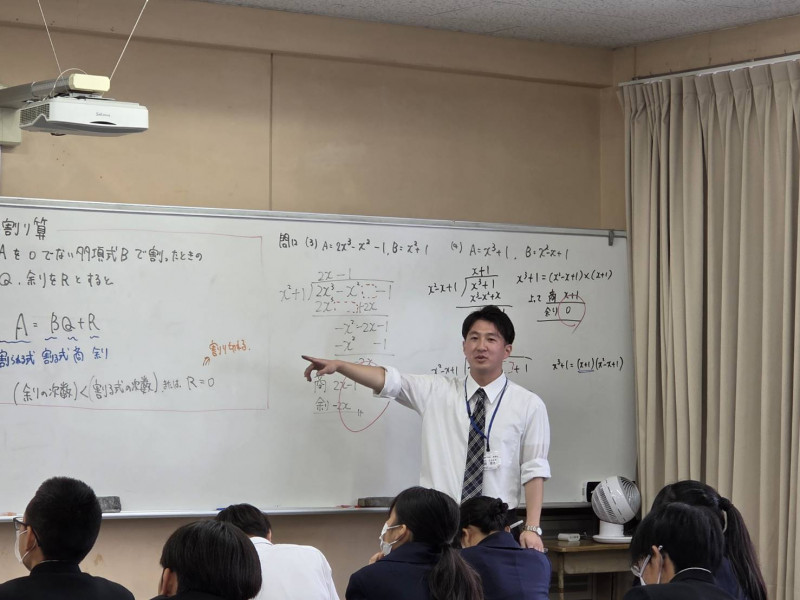 割り算
Aを0でない多項式Bで割ったときの
Q、余りをRとすると
A = BQ+R
割られる式 割る式 商 余り
割り切れる
(余りの次数)<(割る式の次数) または R=0
問12 (3) A=2x³-x²-1, B=x²+1
2x-1
x²+1
2x³-x² -1
2x³ +2x
-x²-2x-1
-x² -1
-2x
商 2x-1
余り -2x
(4) A=x³+1, B=x²-x+1
x+1
x²-x+1
x³+1
x³-x²+x
x³+1=(x²-x+1)×(x+1)
よって 商 x+1
余り 0
x²-x+1
+1
x³+1=(x+1)(x²-x+1)